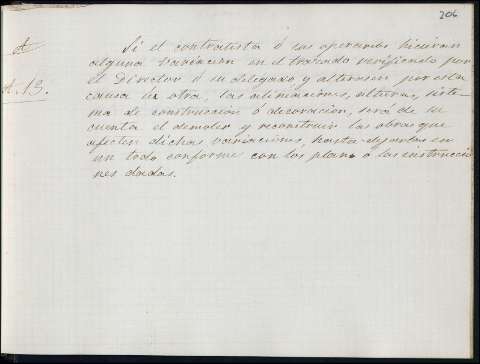 206
A
A. 19.
Si el contratista ó sus operarios hicieran
alguna variacion en el trazado verificado por
el Director ó su delegado y alterasen por esta
causa ú otra, las alineaciones, alturas, siste-
ma de construcción ó decoración, será de su
cuenta el demoler y reconstruir las obras que
afecten dichas variaciones, hasta dejarlas en
un todo conforme con los planos ó las instruccio
nes dadas.